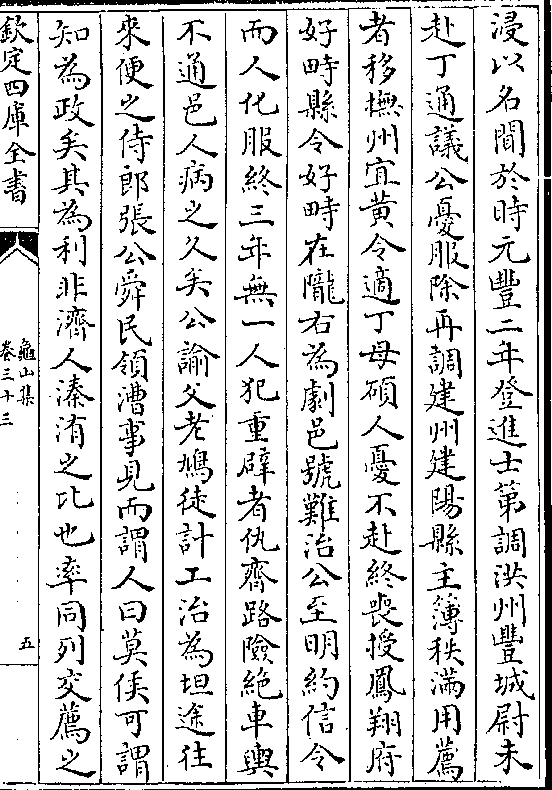 浸以名聞於時元豐二年登進士第調洪州豐城尉未
赴丁通議公憂服除再調建州建陽縣主簿秩滿用薦
者移撫州宜黃令適丁母碩人憂不赴終喪授鳳翔府
好畤縣令好畤在隴右為劇邑號難治公至明約信令
而人化服終三年無一人犯重辟者仇齊路險絶車輿
不通邑人病之久矣公諭父老鳩徒計工治為坦途往
來便之侍郎張公舜民領漕事見而謂人曰莫侯可謂
知為政矣其為利非濟人溱洧之比也率同列交薦之
欽定四庫全書
龜山集
卷三十三
五